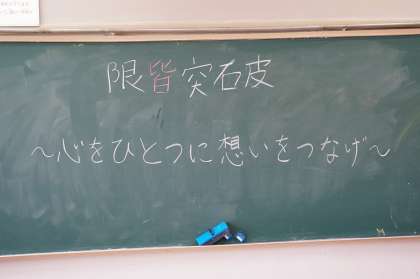 限皆突石皮
～心をひとつに想いをつなげ～